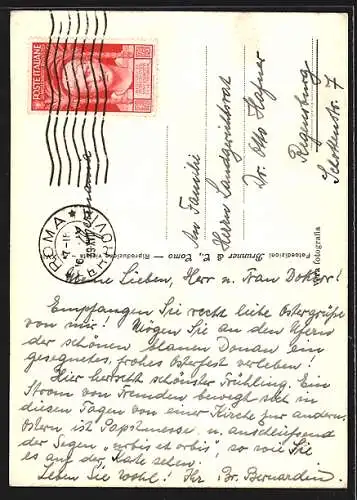 POSTE ITALIANE
ROMA
FERROVIA
Germania
An Familie
Herrn Landgerichtsrat
Dr. Otto Hafner
Regensburg
Schottenstr. 7
Fotoedizioni Brunner & C. Como - Riproduzione vietata
Vera fotografia
Meine Lieben, Herr u. Frau Doktor!
Empfangen Sie recht liebe Ostergrüße
von mir! Mögen Sie an den Ufern
der schönen blauen Donau ein
gesegnetes, frohes Osterfest verleben!
Hier herrscht schönster Frühling. Ein
Strom von Fremden bewegt sich in
diesen Tagen von einer Kirche zur andern.
Ostern ist Papstmesse u. anschließend
der Segen „urbis et orbis", so wie Sie
es auf der Karte sehen.
Leben Sie wohl! Ihr Br. Bernardin.